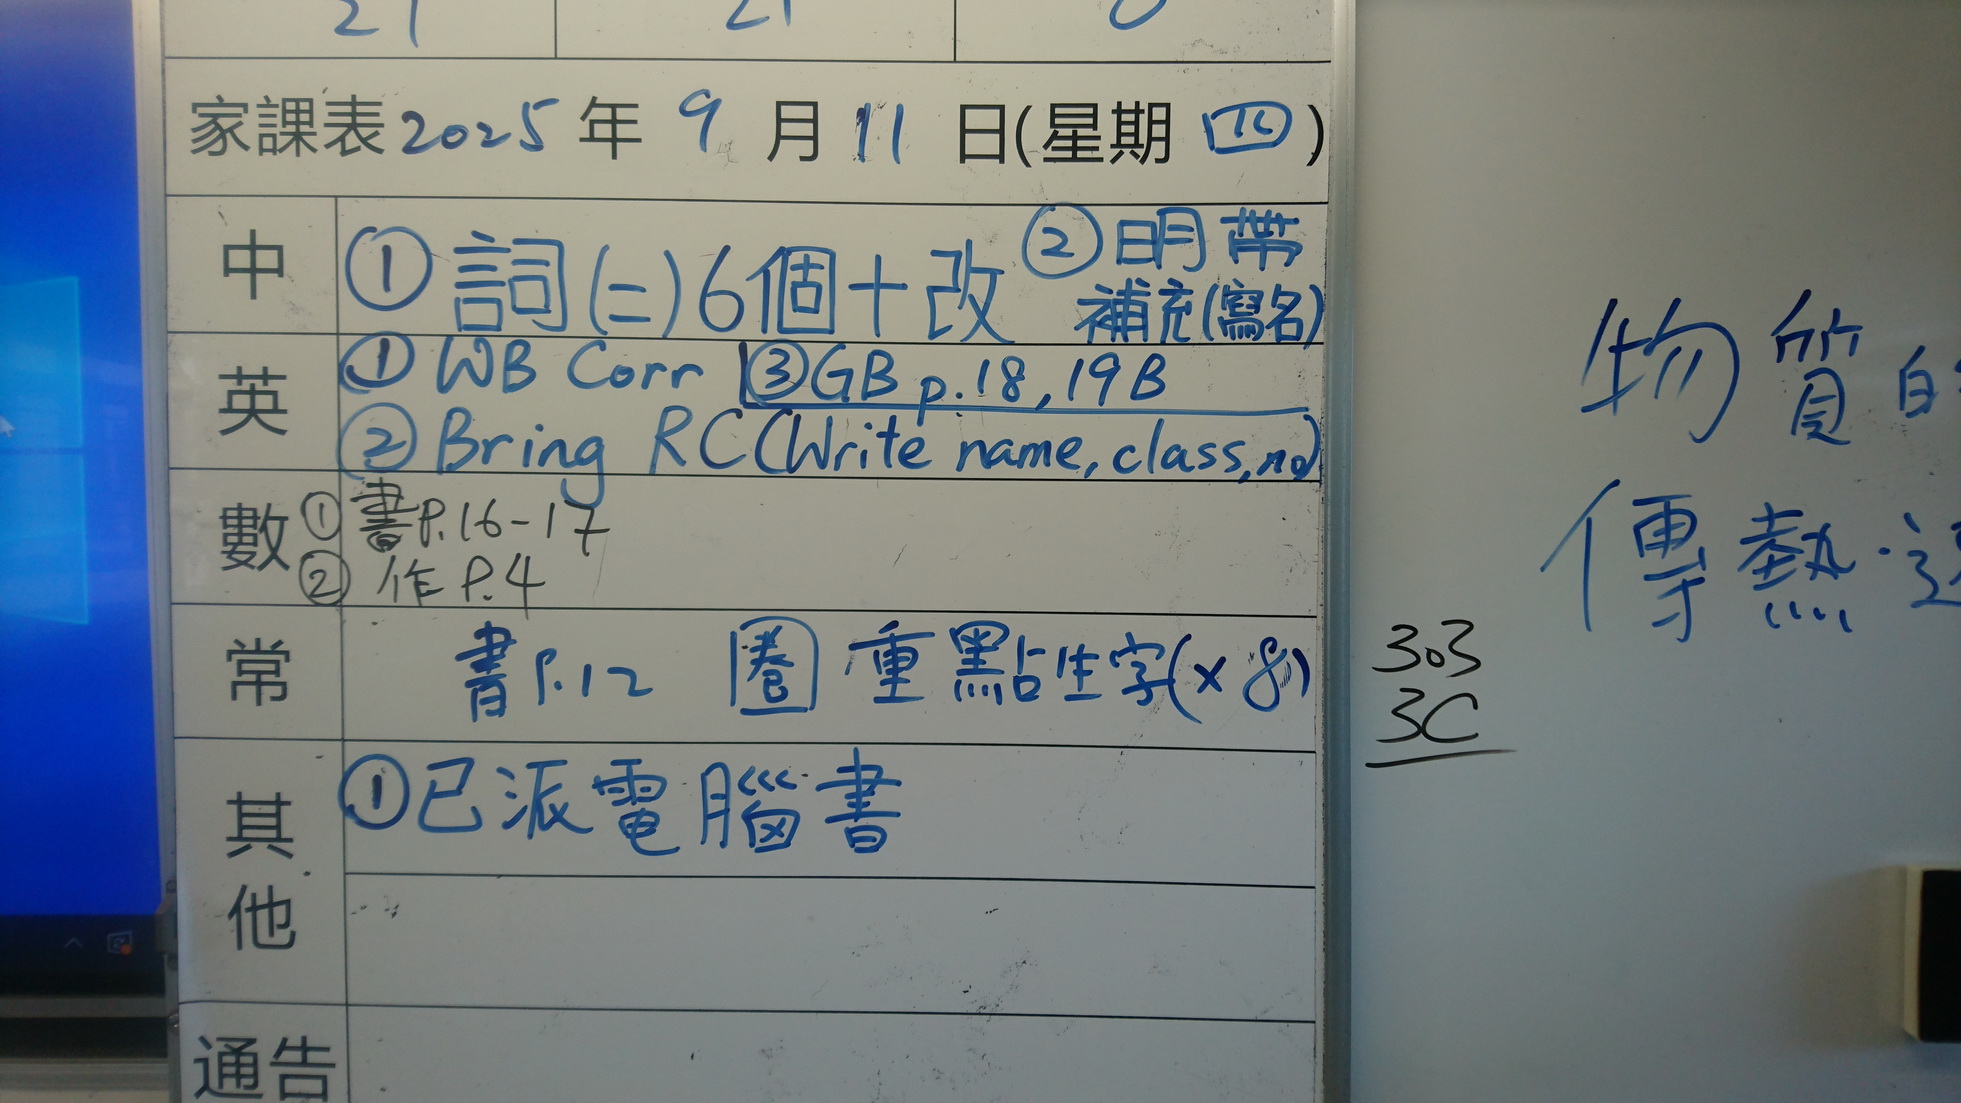 家課表2025年9月11日(星期四)
中
①詞(二)6個+改
②明帶
補充(寫名)
英
①WB Corr ③GB p.18,19B
②Bring RC(Write name, class, no)
數
①書P.16-17
②作P.4
常
書P.12 圈重點生字(x8)
其他
①已派電腦書
通告
物質
傳熱
303
3C